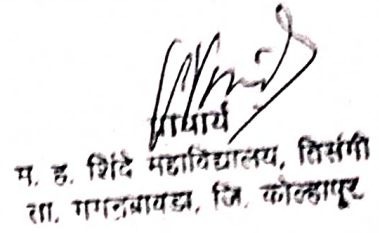 प्राचार्य
म. ह. शिंदे महाविद्यालय, तिसंगी
ता. गगनबावडा, जि. कोल्हापूर